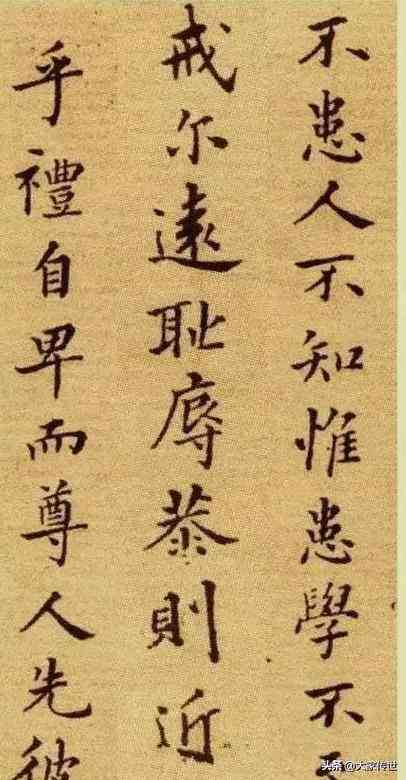 不患人不知惟患學不
戒尔遠耻辱恭則近
乎禮自卑而尊人先彼
头条 @大家传世